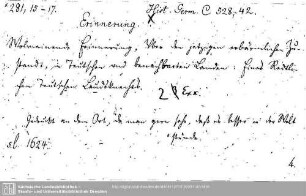 281, 15-17.
Hist. Germ. C. 528, 42.
Erinnerung.
Wolmeinende Erinnerung, Von den jetzigen erbärmlichen Zu-
stande, in Teutschen und benachbarten Landen: Eines Redli-
chen Teutschen Landtsknechts.
2 Exx.
Gedruckt an dem Ort, da man gern sehe, daß es besser in der Welt
stünde.
sl. 1624.
4.
Sächsische Landesbibliothek -
Staats- und Universitätsbibliothek Dresden